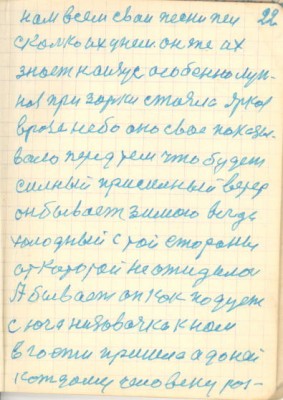 нам всем свои песни пел 22
сколко их у нем он же их
знает наизус особенно лун-
ноя при зорки стояла яркоя
вроде небо оно свое показы-
вало перед тем что будет
силный присилный ветер
он бывает зимою везде
холодный с той стороны
от которой не ожидали
А бывает он как подует
с юга низовочка к нам
в гости пришла а домой
каждому человеку